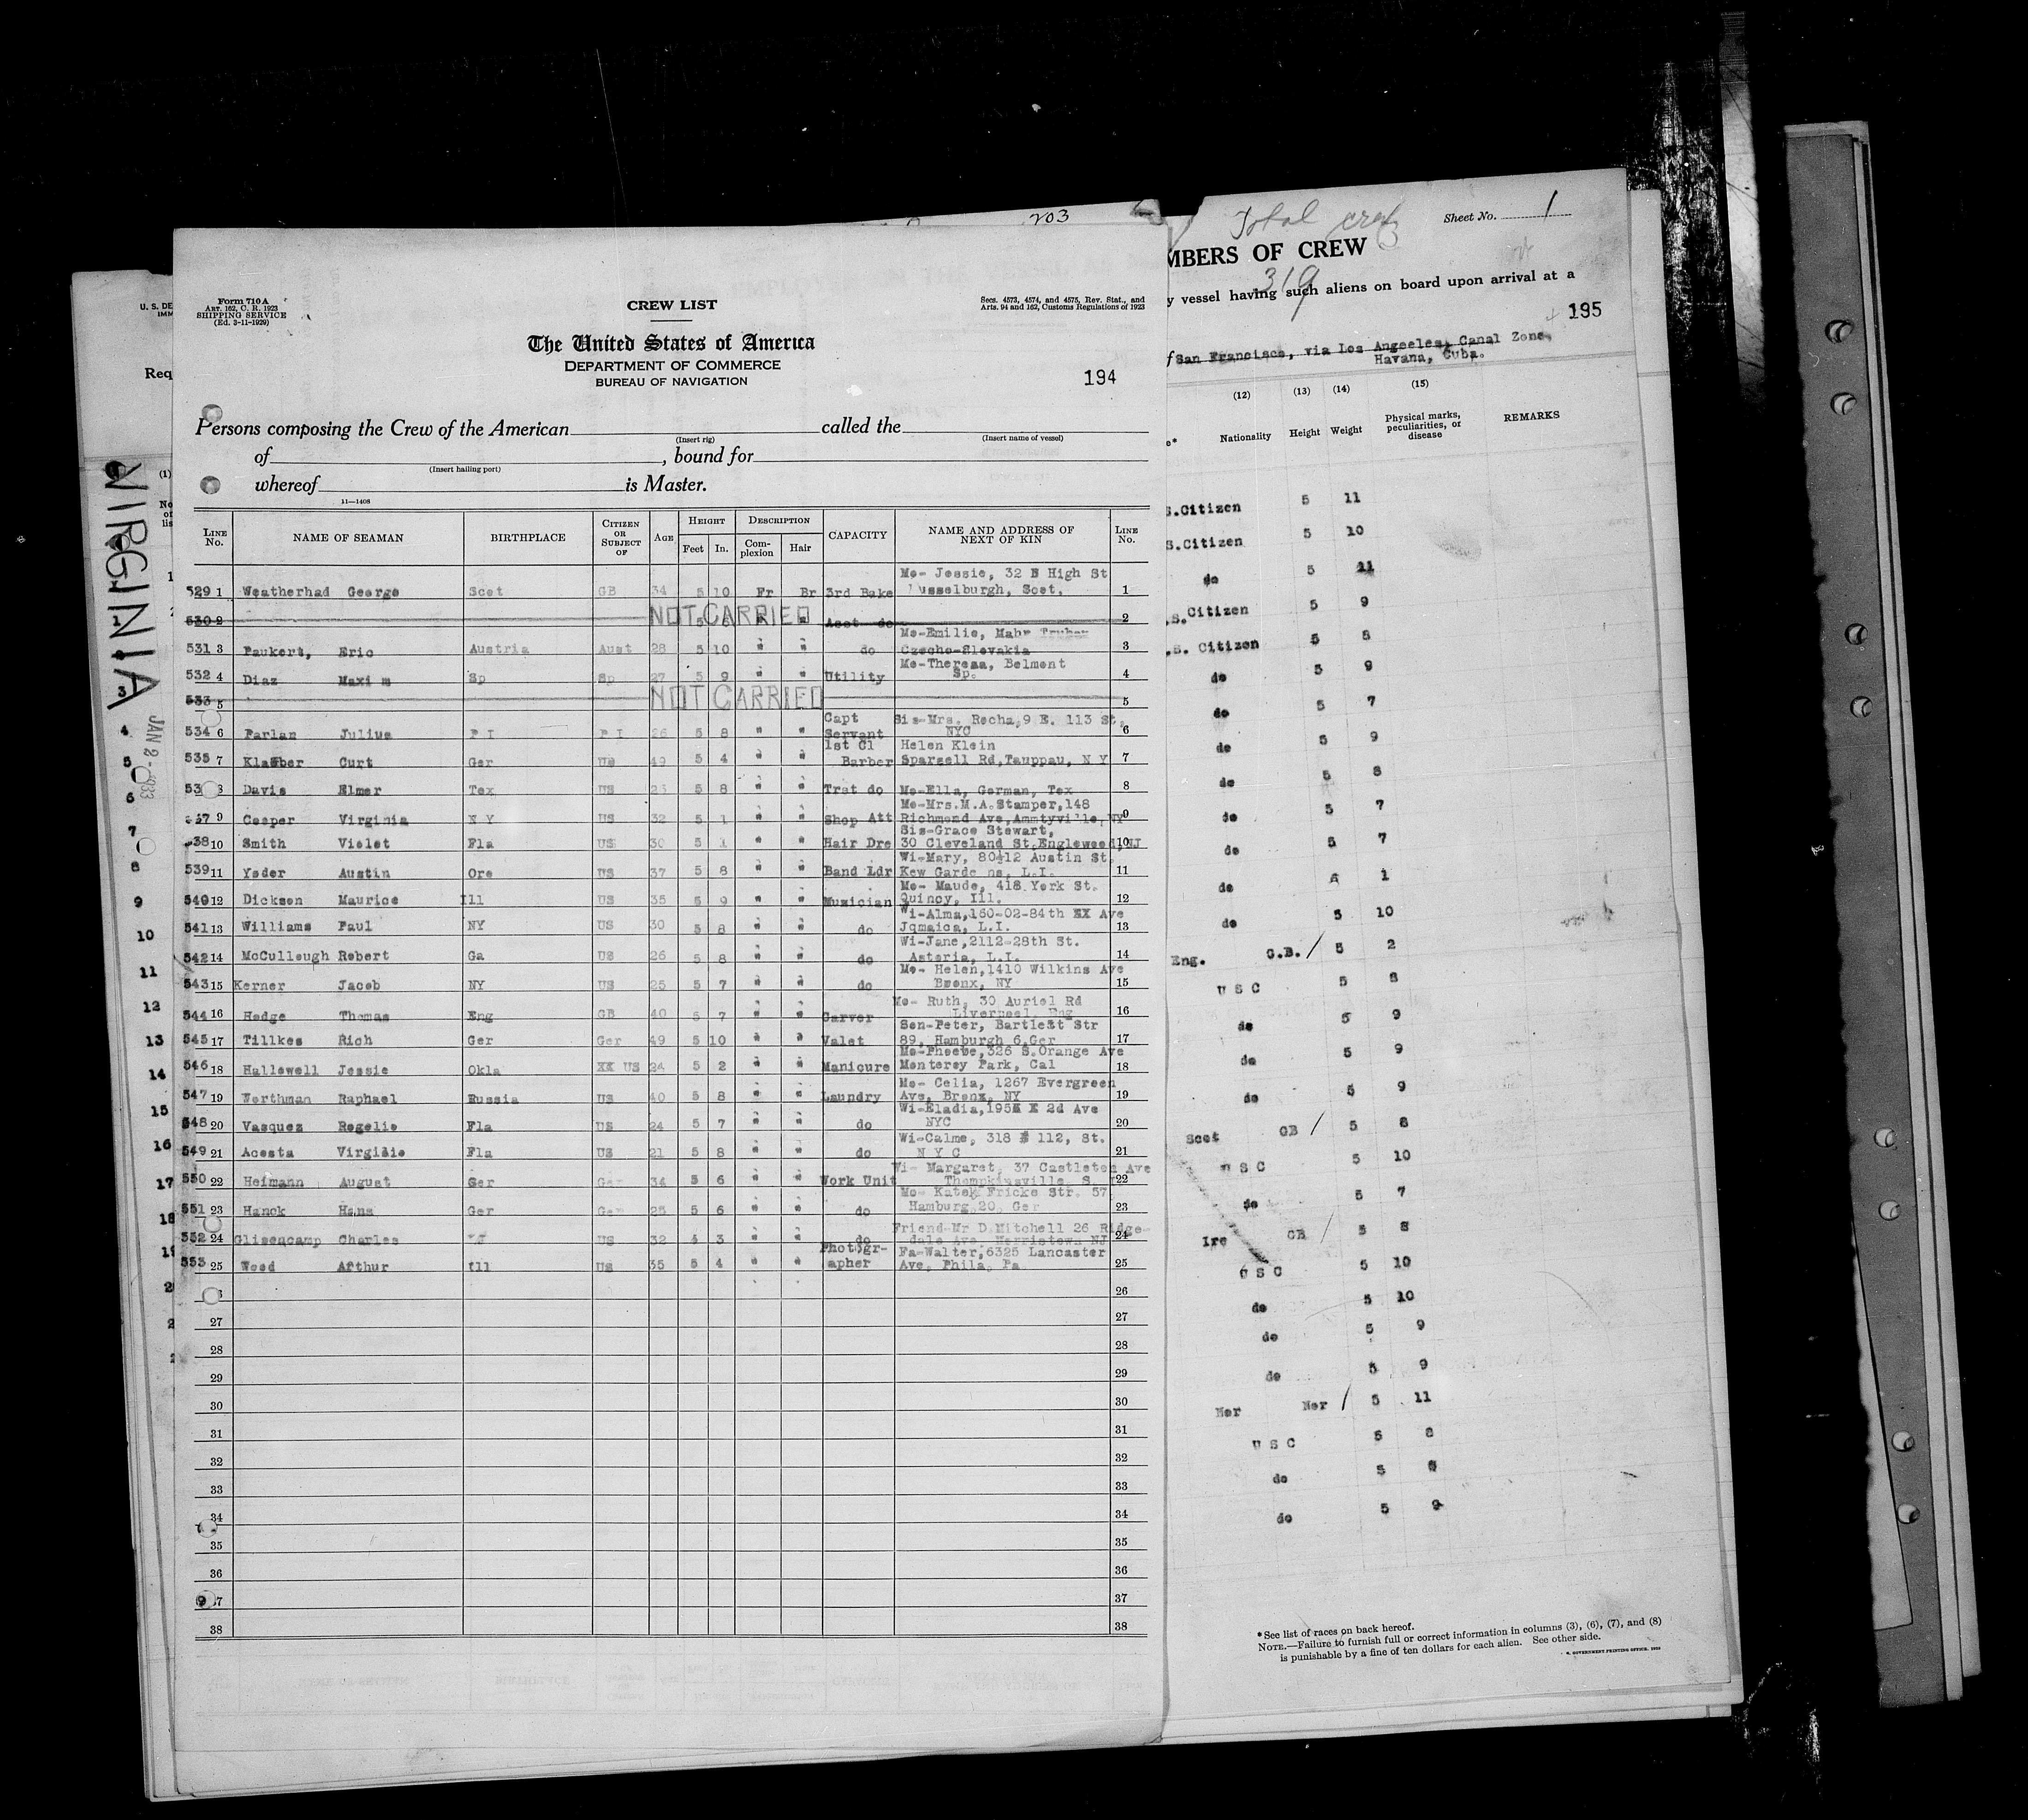 203
Form 710A
ART. 162, C. R. 1923
SHIPPING SERVICE
(Ed. 3-11-1929)
CREW LIST
Secs. 4573, 4574, and 4575, Rev. Stat., and
Arts. 94 and 162, Customs Regulations of 1923
The United States of America
DEPARTMENT OF COMMERCE
BUREAU OF NAVIGATION
194
Persons composing the Crew of the American called the
(Insert rig) (Insert name of vessel)
of , bound for
(Insert hailing port)
whereof is Master.
11—1408
LINE No. NAME OF SEAMAN BIRTHPLACE CITIZEN OR SUBJECT OF AGE HEIGHT Feet In. DESCRIPTION Complexion Hair CAPACITY NAME AND ADDRESS OF NEXT OF KIN LINE No.
Mo- Jessie, 32 N High St
529 1 Weatherhad George Scot GB 34 5 10 Fr Br 3rd Bake Musselburgh, Scot. 1
530 2 NOT CARRIED Asst do 2
Mo-Emilie, Mahr
531 3 Paukert, Eric Austria Aust 28 5 10 " " do Czecho-Slovakia 3
Mo-Theresa, Belmont
532 4 Diaz Maxim Sp Sp 27 5 9 " " Utility Sp. 4
533 5 NOT CARRIED 5
Capt Sis-Mrs. Rocha, 9 E. 113 St,
534 6 Parlan Julius P I P I 26 5 8 " " Servant NYC 6
1st Cl Helen Klein
535 7 Klamber Curt Ger US 49 5 4 " " Barber Sparsell Rd, Tauppau, N Y 7
53 8 Davis Elmer Tex US 25 5 8 " " Trst do Mo-Ella, German, Tex 8
Mo-Mrs.M.A.Stamper,148
37 9 Cooper Virginia N Y US 32 5 1 " " Shop Att Richmond Ave, Ammtyville, NY 9
Sis-Grace Stewart,
38 10 Smith Violet Fla US 30 5 1 " " Hair Dre 30 Cleveland St, Englewood, NJ 10
Wi-Mary, 80-12 Austin St.
539 11 Yoder Austin Ore US 37 5 8 " " Band Ldr Kew Gardens, L.I. 11
Mo- Maude, 418 York St.
540 12 Dickson Maurice Ill US 35 5 9 " " Musician Quincy, Ill. 12
Wi-Alma,160-02-84th EX Ave
541 13 Williams Paul NY US 30 5 8 " " do Jqmaica, L.I. 13
Wi-Jane, 2112-28th St.
542 14 McCullough Robert Ga US 26 5 8 " " do Astoria, L.I. 14
Mo- Helen, 1410 Wilkins Ave
543 15 Kerner Jacob NY US 25 5 7 " " do Bronx, NY 15
Mo- Ruth, 30 Auriol Rd
544 16 Hodge Thomas Eng GB 40 5 7 " " Carver Liverpool, Eng 16
Son-Peter, Bartlett Str
545 17 Tillkes Rich Ger Ger 49 5 10 " " Valet 89, Hamburgh 6, Ger 17
Mo-Phoebe, 326 S.Orange Ave
546 18 Hallowell Jessie Okla XX US 24 5 2 " " Manicure Monterey Park, Cal 18
Mo- Celia, 1267 Evergreen
547 19 Worthman Raphael Russia US 40 5 8 " " Laundry Ave, Bronx, NY 19
Wi-Eladia, 195 E 2d Ave
548 20 Vasquez Rogelio Fla US 24 5 7 " " do NYC 20
Wi-Calme, 318 # 112, St.
549 21 Acosta Virgilio Fla US 21 5 8 " " do N Y C 21
Wi- Margaret, 37 Castleton Ave
550 22 Heimann August Ger Ger 34 5 6 " " Work Unit Thompkinsville, S. 22
Mo- Kate, Fricke Str. 57
551 23 Hanck Hans Ger Ger 25 5 6 " " do Hamburg 20, Ger 23
Friend-Mr D Mitchell 26 Ridge-
552 24 Glisencamp Charles NJ US 32 4 3 " " do dale Ave, Morristown NJ 24
Photogr- Fa-Walter, 6325 Lancaster
553 25 Wood Arthur Ill US 35 5 4 " " apher Ave, Phila, Pa 25
26
27 27
28 28
29 29
30 30
31 31
32 32
33 33
34 34
35 35
36 36
37 37
38 38
U. S. DE
IMM
Req
(1)
No
of
lis
VIRGINIA
JAN 2 - 1933
1
3
4
5
6
7
8
9
10
11
12
13
14
15
16
17
18
19
Total crew
319
Sheet No. 1
MBERS OF CREW
y vessel having such aliens on board upon arrival at a
195
f San Francisco, via Los Angeeles, Canal Zone,
Havana, Cuba.
(12) (13) (14) (15)
Nationality Height Weight Physical marks, peculiarities, or disease REMARKS
S.Citizen 5 11
S.Citizen 5 10
do 5 11
.S.Citizen 5 9
.S. Citizen 5 8
do 5 9
do 5 7
do 5 9
do 5 8
do 5 7
do 5 7
do 1
do 5 10
Eng. G.B. / 5 2
U S C 5 8
do 5 9
do 5 9
do 5 9
Scot GB / 5 8
U S C 5 10
do 5 7
Ire GB / 5 8
U S C 5 10
do 5 10
do 5 9
do 5 9
Nor Nor / 5 11
U S C 5 8
do 5
do 5 9
* See list of races on back hereof.
NOTE.—Failure to furnish full or correct information in columns (3), (6), (7), and (8)
is punishable by a fine of ten dollars for each alien. See other side.
U. S. GOVERNMENT PRINTING OFFICE